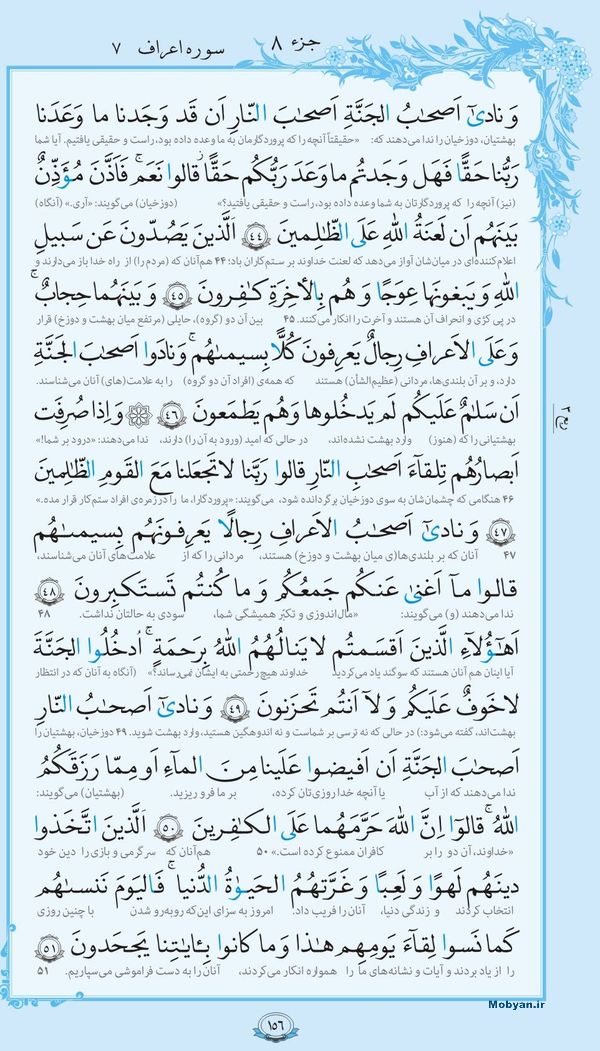 جزء ۸
سوره اعراف ۷
وَ نادىٰٓ اَصحٰبُ الجَنَّةِ اَصحٰبَ النّارِ اَن قَد وَجَدنا ما وَعَدَنا
بهشتیان، دوزخیان را ندا می‌دهند که: «حقیقتاً آنچه را که پروردگارمان به ما وعده داده بود، راست و حقیقی یافتیم. آیا شما
رَبُّنا حَقًّا فَهَل وَجَدتُم ما وَعَدَ رَبُّكُم حَقًّا ۖ قالوا نَعَم ۚ فَاَذَّنَ مُؤَذِّنٌ
(نیز) آنچه را که پروردگارتان به شما وعده داده بود، راست و حقیقی یافتید؟» (دوزخیان) می‌گویند: «آری.» (آنگاه)
بَينَهُم اَن لَعنَةُ اللهِ عَلَى الظّٰلِمينَ ﴿٤٤﴾ اَلَّذينَ يَصُدّونَ عَن سَبيلِ
اعلام‌کننده‌ای در میان‌شان آواز می‌دهد که لعنت خداوند بر ستم‌کاران باد؛ ۴۴ هم‌آنان که (مردم را) از راه خدا باز می‌دارند و
اللهِ وَ يَبغونَها عِوَجًا وَ هُم بِالأٰخِرَةِ كٰفِرونَ ﴿٤٥﴾ وَ بَينَهُما حِجابٌ ۚ
در پی کژی و انحراف آن هستند و آخرت را انکار می‌کنند. ۴۵ بین آن دو (گروه)، حایلی (مرتفع میان بهشت و دوزخ) قرار
وَ عَلَى الاَعرافِ رِجالٌ يَعرِفونَ كُلًّا بِسيمىٰهُم ۚ وَ نادَوا اَصحٰبَ الجَنَّةِ
دارد، و بر آن بلندی‌ها، مردانی (عظیم‌الشأن) هستند که همه‌ی (افراد آن دو گروه) را به علامت(های) آنان می‌شناسند.
اَن سَلٰمٌ عَلَيكُم لَم يَدخُلوها وَ هُم يَطمَعونَ ﴿٤٦﴾ ۞ وَ اِذا صُرِفَت
بهشتیانی را که (هنوز) وارد بهشت نشده‌اند، در حالی که امید (ورود به آن را) دارند، ندا می‌دهند: «درود بر شما!»
اَبصارُهُم تِلقاءَ اَصحٰبِ النّارِ قالوا رَبَّنا لا تَجعَلنا مَعَ القَومِ الظّٰلِمينَ
۴۶ هنگامی که چشمان‌شان به سوی دوزخیان برگردانده شود، می‌گویند: «پروردگارا، ما را در زمره‌ی افراد ستم‌کار قرار مده.»
﴿٤٧﴾ وَ نادىٰٓ اَصحٰبُ الاَعرافِ رِجالًا يَعرِفونَهُم بِسيمىٰهُم
۴۷ آنان که بر بلندی‌ها(ی میان بهشت و دوزخ) هستند، مردانی را که از علامت‌های آنان می‌شناسند،
قالوا مآ اَغنىٰ عَنكُم جَمعُكُم وَ ما كُنتُم تَستَكبِرونَ ﴿٤٨﴾
ندا می‌دهند (و) می‌گویند: «مال‌اندوزی و تکبّر همیشگی شما، سودی به حالتان نداشت. ۴۸
اَهٰٓؤُلآءِ الَّذينَ اَقسَمتُم لا يَنالُهُمُ اللهُ بِرَحمَةٍ ۚ اُدخُلُوا الجَنَّةَ
آیا اینان هم آنان هستند که سوگند یاد می‌کردید خداوند هیچ رحمتی به ایشان نمی‌رساند؟» (آنگاه به آنان که در انتظار
لا خَوفٌ عَلَيكُم وَ لآ اَنتُم تَحزَنونَ ﴿٤٩﴾ وَ نادىٰٓ اَصحٰبُ النّارِ
بهشت‌اند، گفته می‌شود:) در حالی که نه ترسی بر شماست و نه اندوهگین هستید، وارد بهشت شوید. ۴۹ دوزخیان، بهشتیان را
اَصحٰبَ الجَنَّةِ اَن اَفيضوا عَلَينا مِنَ المآءِ اَو مِمّا رَزَقَكُمُ
ندا می‌دهند که از آب یا آنچه خدا روزی‌تان کرده، بر ما فرو ریزید. (بهشتیان) می‌گویند:
اللهُ ۚ قالوٓا اِنَّ اللهَ حَرَّمَهُما عَلَى الكٰفِرينَ ﴿٥٠﴾ اَلَّذينَ اتَّخَذوا
«خداوند، آن دو را بر کافران ممنوع کرده است.» ۵۰ هم‌آنان که سرگرمی و بازی را دین خود
دينَهُم لَهوًا وَ لَعِبًا وَ غَرَّتهُمُ الحَيوٰةُ الدُّنيا ۚ فَاليَومَ نَنسىٰهُم
انتخاب کردند و زندگی دنیا، آنان را فریب داد. امروز به سزای این‌که روبه‌رو شدن با چنین روزی
كَما نَسوا لِقآءَ يَومِهِم هٰذا وَ ما كانوا بِـٔايٰتِنا يَجحَدونَ ﴿٥١﴾
را از یاد بردند و آیات و نشانه‌های ما را همواره انکار می‌کردند، آنان را به دست فراموشی می‌سپاریم. ۵۱
Mobyan.ir
١٥٦